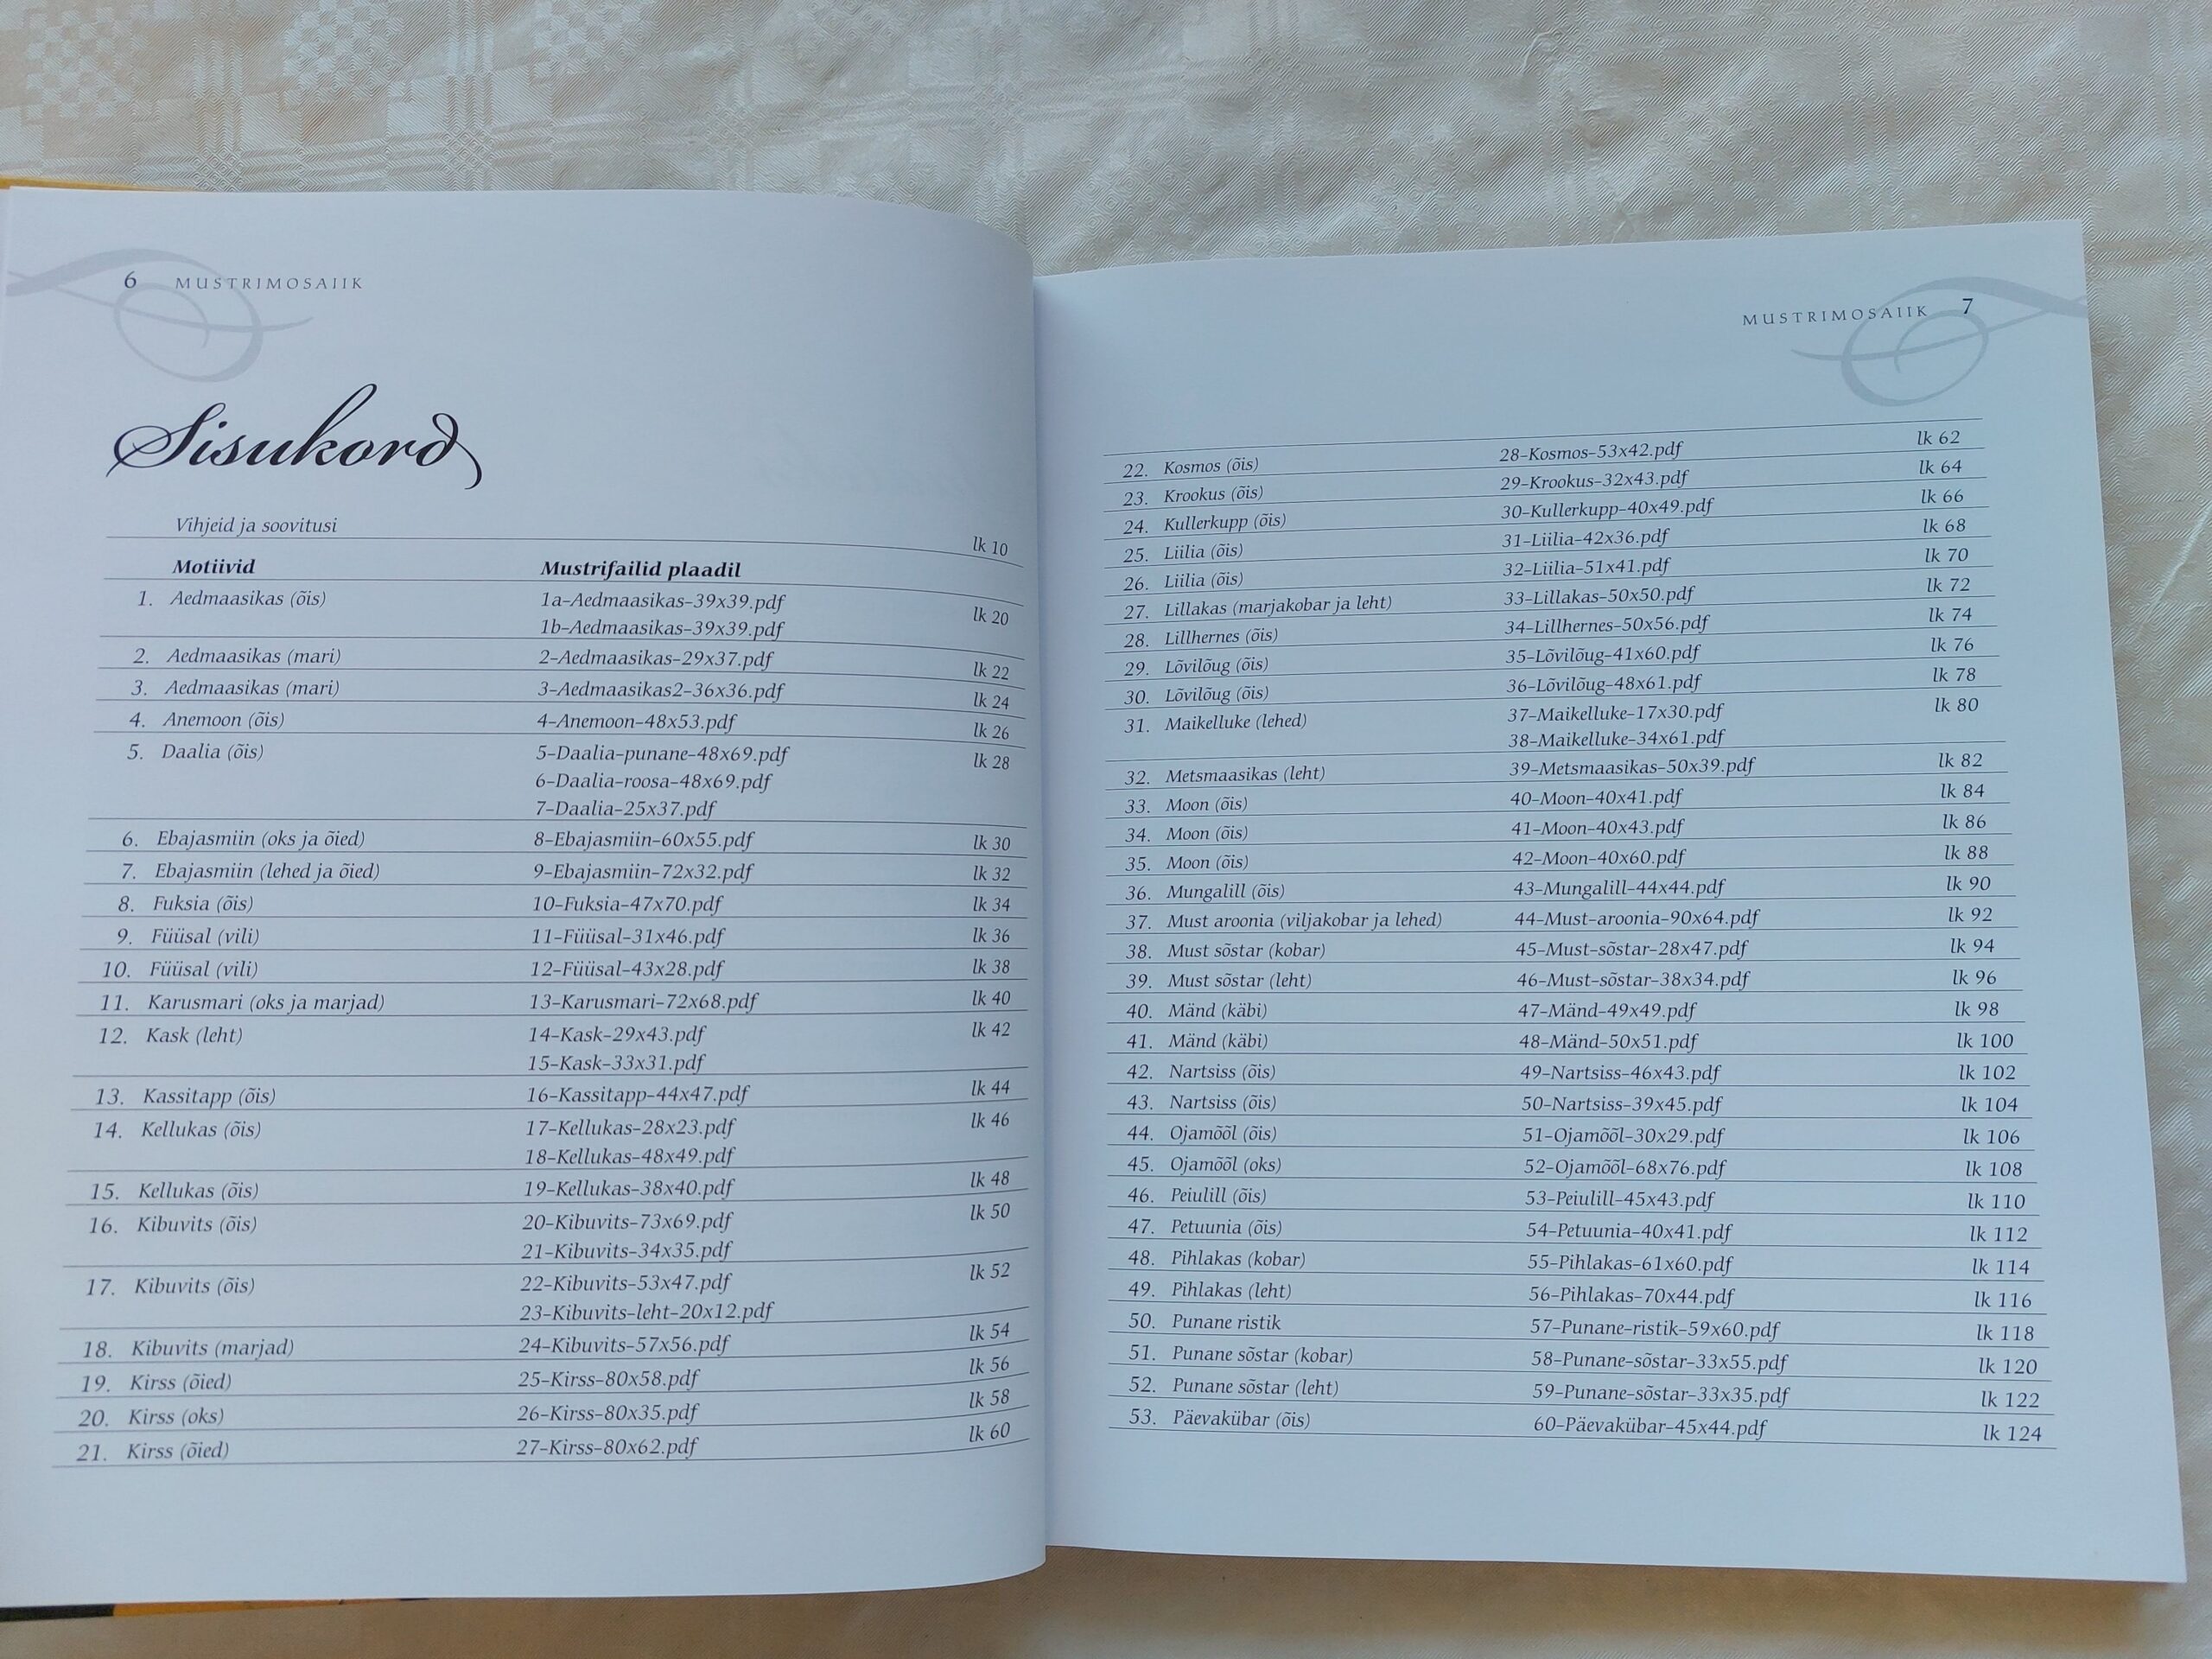 6 MUSTRIMOSAIIK
Sisukord
Vihjeid ja soovitusi lk 10
Motiivid Mustrifailid plaadil
1. Aedmaasikas (õis) 1a-Aedmaasikas-39x39.pdf lk 20
1b-Aedmaasikas-39x39.pdf
2. Aedmaasikas (mari) 2-Aedmaasikas-29x37.pdf lk 22
3. Aedmaasikas (mari) 3-Aedmaasikas2-36x36.pdf lk 24
4. Anemoon (õis) 4-Anemoon-48x53.pdf lk 26
5. Daalia (õis) 5-Daalia-punane-48x69.pdf lk 28
6-Daalia-roosa-48x69.pdf
7-Daalia-25x37.pdf
6. Ebajasmiin (oks ja õied) 8-Ebajasmiin-60x55.pdf lk 30
7. Ebajasmiin (lehed ja õied) 9-Ebajasmiin-72x32.pdf lk 32
8. Fuksia (õis) 10-Fuksia-47x70.pdf lk 34
9. Füüsal (vili) 11-Füüsal-31x46.pdf lk 36
10. Füüsal (vili) 12-Füüsal-43x28.pdf lk 38
11. Karusmari (oks ja marjad) 13-Karusmari-72x68.pdf lk 40
12. Kask (leht) 14-Kask-29x43.pdf lk 42
15-Kask-33x31.pdf
13. Kassitapp (õis) 16-Kassitapp-44x47.pdf lk 44
14. Kellukas (õis) 17-Kellukas-28x23.pdf lk 46
18-Kellukas-48x49.pdf
15. Kellukas (õis) 19-Kellukas-38x40.pdf lk 48
16. Kibuvits (õis) 20-Kibuvits-73x69.pdf lk 50
21-Kibuvits-34x35.pdf
17. Kibuvits (õis) 22-Kibuvits-53x47.pdf lk 52
23-Kibuvits-leht-20x12.pdf
18. Kibuvits (marjad) 24-Kibuvits-57x56.pdf lk 54
19. Kirss (õied) 25-Kirss-80x58.pdf lk 56
20. Kirss (oks) 26-Kirss-80x35.pdf lk 58
21. Kirss (õied) 27-Kirss-80x62.pdf lk 60
MUSTRIMOSAIIK 7
22. Kosmos (õis) 28-Kosmos-53x42.pdf lk 62
23. Krookus (õis) 29-Krookus-32x43.pdf lk 64
24. Kullerkupp (õis) 30-Kullerkupp-40x49.pdf lk 66
25. Liilia (õis) 31-Liilia-42x36.pdf lk 68
26. Liilia (õis) 32-Liilia-51x41.pdf lk 70
27. Lillakas (marjakobar ja leht) 33-Lillakas-50x50.pdf lk 72
28. Lillhernes (õis) 34-Lillhernes-50x56.pdf lk 74
29. Lõvilõug (õis) 35-Lõvilõug-41x60.pdf lk 76
30. Lõvilõug (õis) 36-Lõvilõug-48x61.pdf lk 78
31. Maikelluke (lehed) 37-Maikelluke-17x30.pdf lk 80
38-Maikelluke-34x61.pdf
32. Metsmaasikas (leht) 39-Metsmaasikas-50x39.pdf lk 82
33. Moon (õis) 40-Moon-40x41.pdf lk 84
34. Moon (õis) 41-Moon-40x43.pdf lk 86
35. Moon (õis) 42-Moon-40x60.pdf lk 88
36. Mungalill (õis) 43-Mungalill-44x44.pdf lk 90
37. Must aroonia (viljakobar ja lehed) 44-Must-aroonia-90x64.pdf lk 92
38. Must sõstar (kobar) 45-Must-sõstar-28x47.pdf lk 94
39. Must sõstar (leht) 46-Must-sõstar-38x34.pdf lk 96
40. Mänd (käbi) 47-Mänd-49x49.pdf lk 98
41. Mänd (käbi) 48-Mänd-50x51.pdf lk 100
42. Nartsiss (õis) 49-Nartsiss-46x43.pdf lk 102
43. Nartsiss (õis) 50-Nartsiss-39x45.pdf lk 104
44. Ojamõõl (õis) 51-Ojamõõl-30x29.pdf lk 106
45. Ojamõõl (oks) 52-Ojamõõl-68x76.pdf lk 108
46. Peiulill (õis) 53-Peiulill-45x43.pdf lk 110
47. Petuunia (õis) 54-Petuunia-40x41.pdf lk 112
48. Pihlakas (kobar) 55-Pihlakas-61x60.pdf lk 114
49. Pihlakas (leht) 56-Pihlakas-70x44.pdf lk 116
50. Punane ristik 57-Punane-ristik-59x60.pdf lk 118
51. Punane sõstar (kobar) 58-Punane-sõstar-33x55.pdf lk 120
52. Punane sõstar (leht) 59-Punane-sõstar-33x35.pdf lk 122
53. Päevakübar (õis) 60-Päevakübar-45x44.pdf lk 124